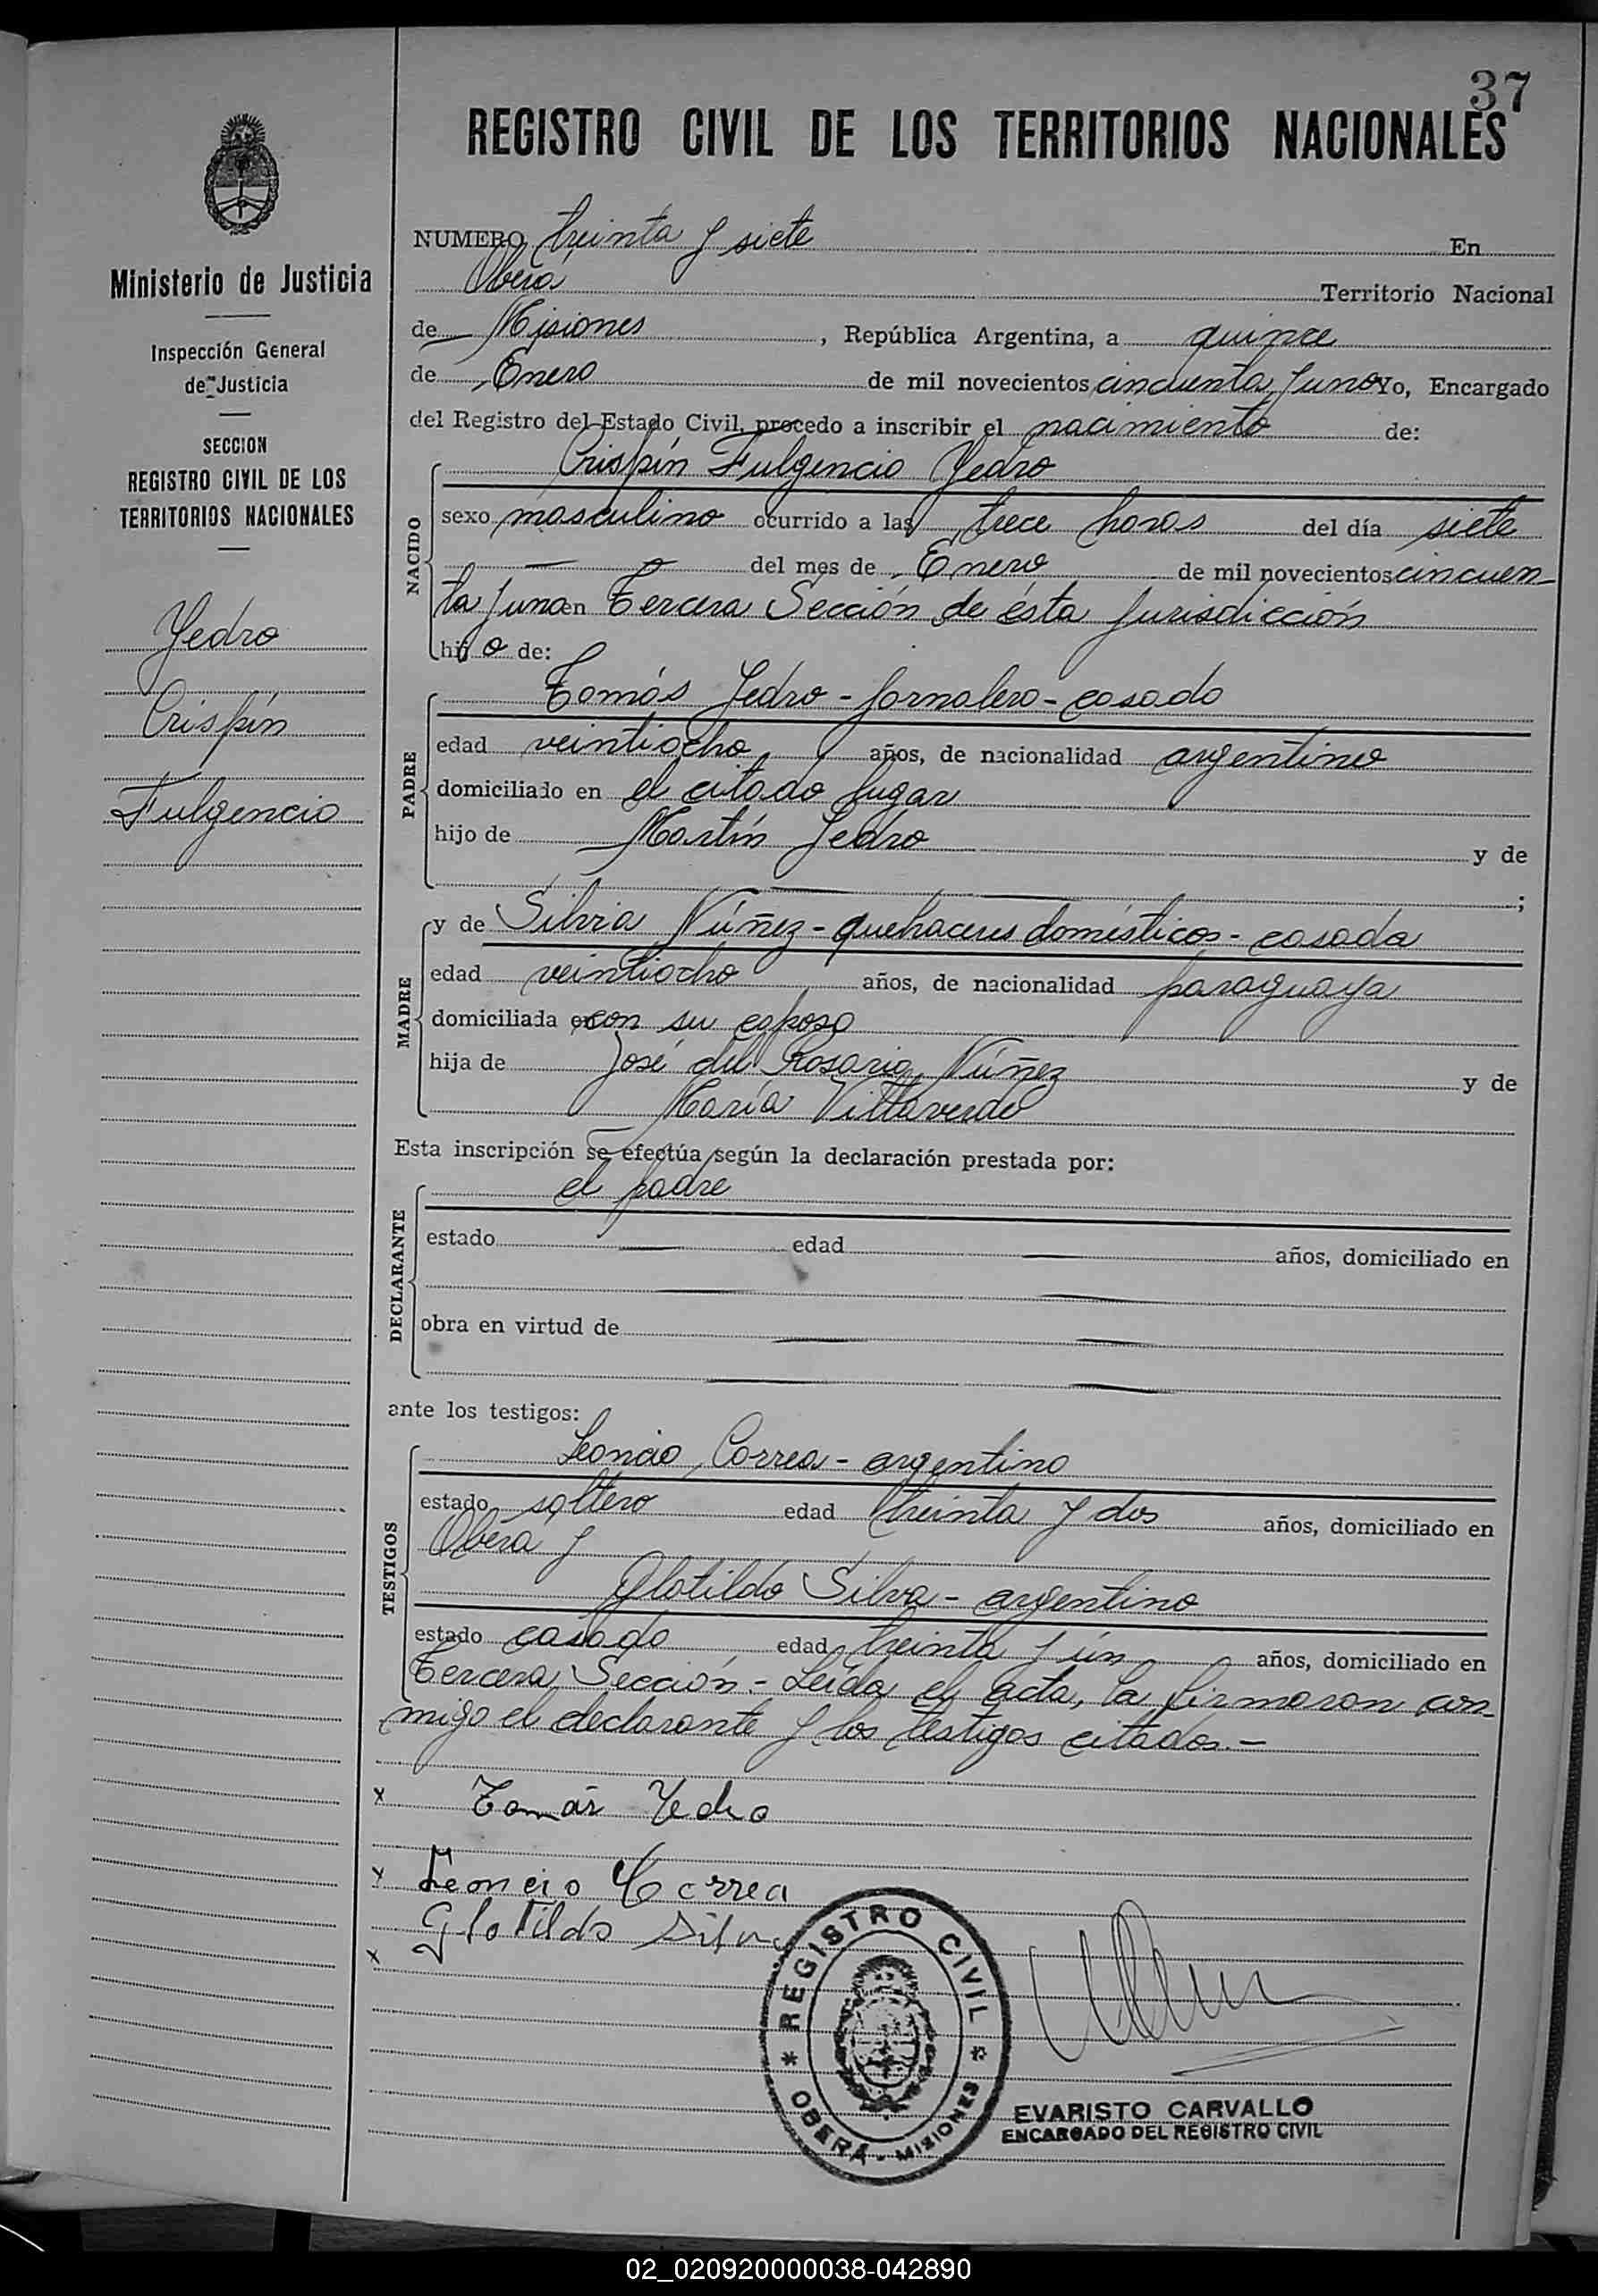 37
REGISTRO CIVIL DE LOS TERRITORIOS NACIONALES
Ministerio de Justicia
Inspección General
de Justicia
SECCION
REGISTRO CIVIL DE LOS
TERRITORIOS NACIONALES
Yedro
Crispín
Fulgencio
NUMERO treinta y siete En
Oberá Territorio Nacional
de Misiones, República Argentina, a quince
de Enero de mil novecientos cincuenta y uno Yo, Encargado
del Registro del Estado Civil, procedo a inscribir el nacimiento de:
Crispín Fulgencio Yedro
NACIDO
sexo masculino ocurrido a las trece horas del día siete
del mes de Enero de mil novecientos cincuen-
ta y uno en Tercera Sección de ésta Jurisdicción
hijo de:
Tomás Yedro - jornalero - casado
PADRE
edad veintiocho años, de nacionalidad argentino
domiciliado en el citado lugar
hijo de Martín Yedro y de
;
y de Silvia Núñez - quehaceres domésticos - casada
MADRE
edad veintiocho años, de nacionalidad paraguaya
domiciliada en con su esposo
hija de José del Rosario Núñez y de
María Villaverde
Esta inscripción se efectúa según la declaración prestada por:
el padre
DECLARANTE
estado edad años, domiciliado en
obra en virtud de
ante los testigos:
Leoncio Correa - argentino
TESTIGOS
estado soltero edad treinta y dos años, domiciliado en
Oberá y
Glotildo Silva - argentino
estado casado edad treinta y un años, domiciliado en
Tercera Sección.- Leída el acta, la firmaron con-
migo el declarante y los testigos citados.-
x Tomás Yedro
x Leoncio Correa
x Glotildo Silva
REGISTRO CIVIL
OBERÁ - MISIONES
EVARISTO CARVALLO
ENCARGADO DEL REGISTRO CIVIL
02_020920000038-042890